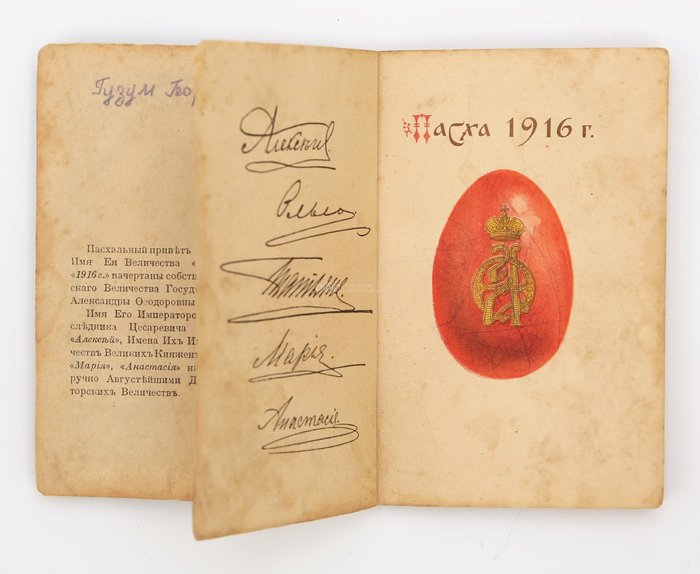 Гузум Геор
Пасхальный привѣтъ
Имя Ея Величества «
«1916 г.» начертаны собств
скаго Величества Госуд
Александры Ѳеодоровны
Имя Его Император
слѣдника Цесаревича
«Алексѣй», Имена Ихъ И
чествъ Великихъ Княжен
«Марія», «Анастасія» на
ручно Августѣйшими Д
торскихъ Величествъ.
Алексѣй
Ольга
Татьяна.
Марія.
Анастасія.
Пасха 1916 г.